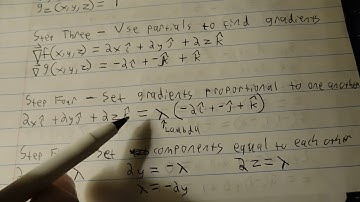 g_z(x,y,z) = 1
Step Three - Use partials to find gradients
∇f(x,y,z) = 2xî + 2yĵ + 2zk̂
∇g(x,y,z) = -2î + -ĵ + k̂
Step Four - Set gradients proportional to one another
2xî + 2yĵ + 2zk̂ = λ(-2î + -ĵ + k̂)
Lambda
Step components equal to each other
2y = -λ 2z = λ
λ = -2y